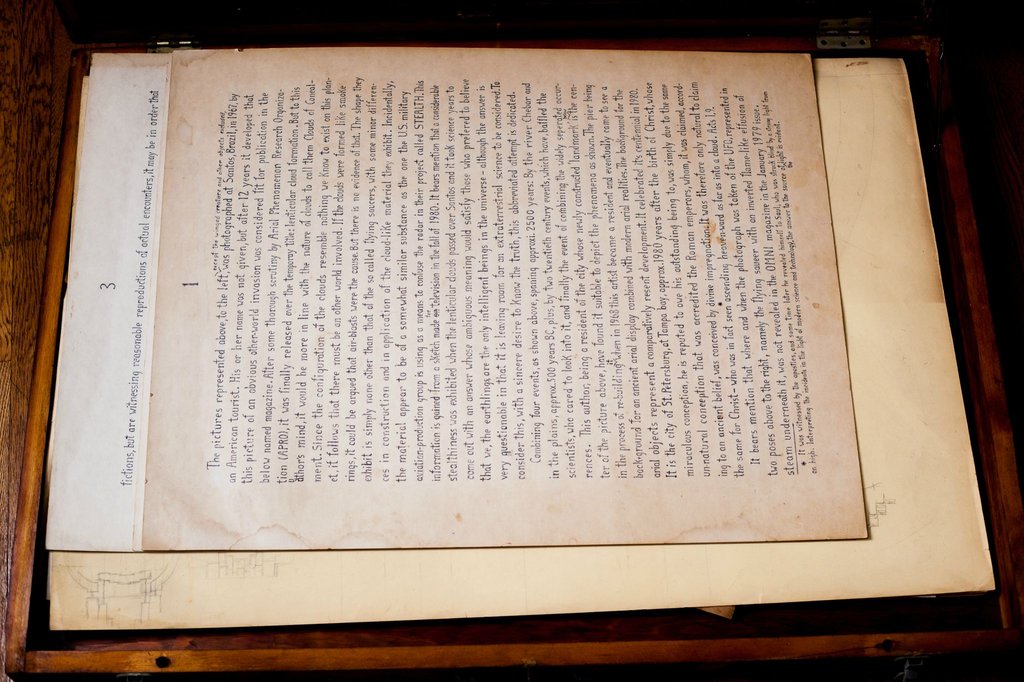 fictions, but are witnessing reasonable reproductions of actual encounters, it may be in order that
3
1
The pictures represented above, to the left, was photographed at Santos, Brazil, in 1967, by
an American tourist. His or her name was not given, but after 12 years it developed that
this picture of an obvious other-world invasion was considered fit for publication in the
below named magazine. After some thorough scrutiny by Arial Phenomenon Research Organiza-
tion (APRO), it was finally released over the temporay title: lenticular cloud formation. But to this
author's mind, it would be more in line with the nature of clouds to call them Clouds of Conceal-
ment, Since the configuration of the clouds resemble nothing we know to exist on this plan-
et, it follows that there must be an other world involved. If the clouds were formed like smoke
rings, it could be argued that air-blasts were the cause. But there is no evidence of that. The shape they
exhibit is simply none other than that of the so called flying saucers, with some minor differen-
ces in construction and in application of the cloud-like material they exhibit. Incidentally,
the material appear to be of a somewhat similar substance as the one the U.S. military
aviation-production group is using as a means to confuse the radar in their project called STEALTH. This
information is gained from a sketch made on television in the fall of 1980. It bears mention that a considerable
stealthiness was exhibited when the lenticular clouds passed over Santos and it took science years to
come out with an answer whose ambiguous meaning would satisfy those who preferred to believe
that we, the earthlings are the only intelligent beings in the universe - although the answer is
very questionable in that it is leaving room for an extraterrestrial science to be considered. To
consider this, with a sincere desire to Know the truth, this abbreviated attempt is dedicated.
Combining four events, as shown above, spaning approx. 2500 years: By the river Chebar and
in the plains, approx. 500 years BC, plus, by two twentieth century events, which have baffled the
scientists, who cared to look into it, and finally the event of combining the widely seperated occur-
rences. This author, being a resident of the city whose newly constructed "landmark" is the cen-
ter of the picture above, have found it suitable to depict the phenomena as shown. The pier being
in the process of re-building when in 1968 this artist became a resident and eventually came to see a
background for an ancient arial display combined with modern arial realities. The background for the
arial objects represent a comparatively recent development. It celebrated its centennial in 1980.
It is the city of St. Petersburg, at Tampa bay, approx. 1980 years after the birth of Christ, whose
miraculous conception, he is reputed to owe his outstanding being to, was simply due to the same
un-natural conception that was accredited the Roman emperors, whom, it was claimed, accord-
ing to an ancient belief, was conceived by divine impregnation. It was therefore only natural to claim
the same for Christ - who was in fact seen ascending heaven-ward as far as into a cloud. Acts 1,9.
It bears mention that where and when the photograph was taken of the UFO, represented in
two poses above to the right, namely the flying saucer with an inverted flame-like effusion of
steam underneath it, was not revealed in the OMNI magazine in the January 1979 issue.
* It was witnessed by the apostles, and some time later he revealed himself to Saul, who was struck blind by a strong light from
on high. Interpreting the incidents in the light of modern science and technology, the answer to the source of the light is evident.